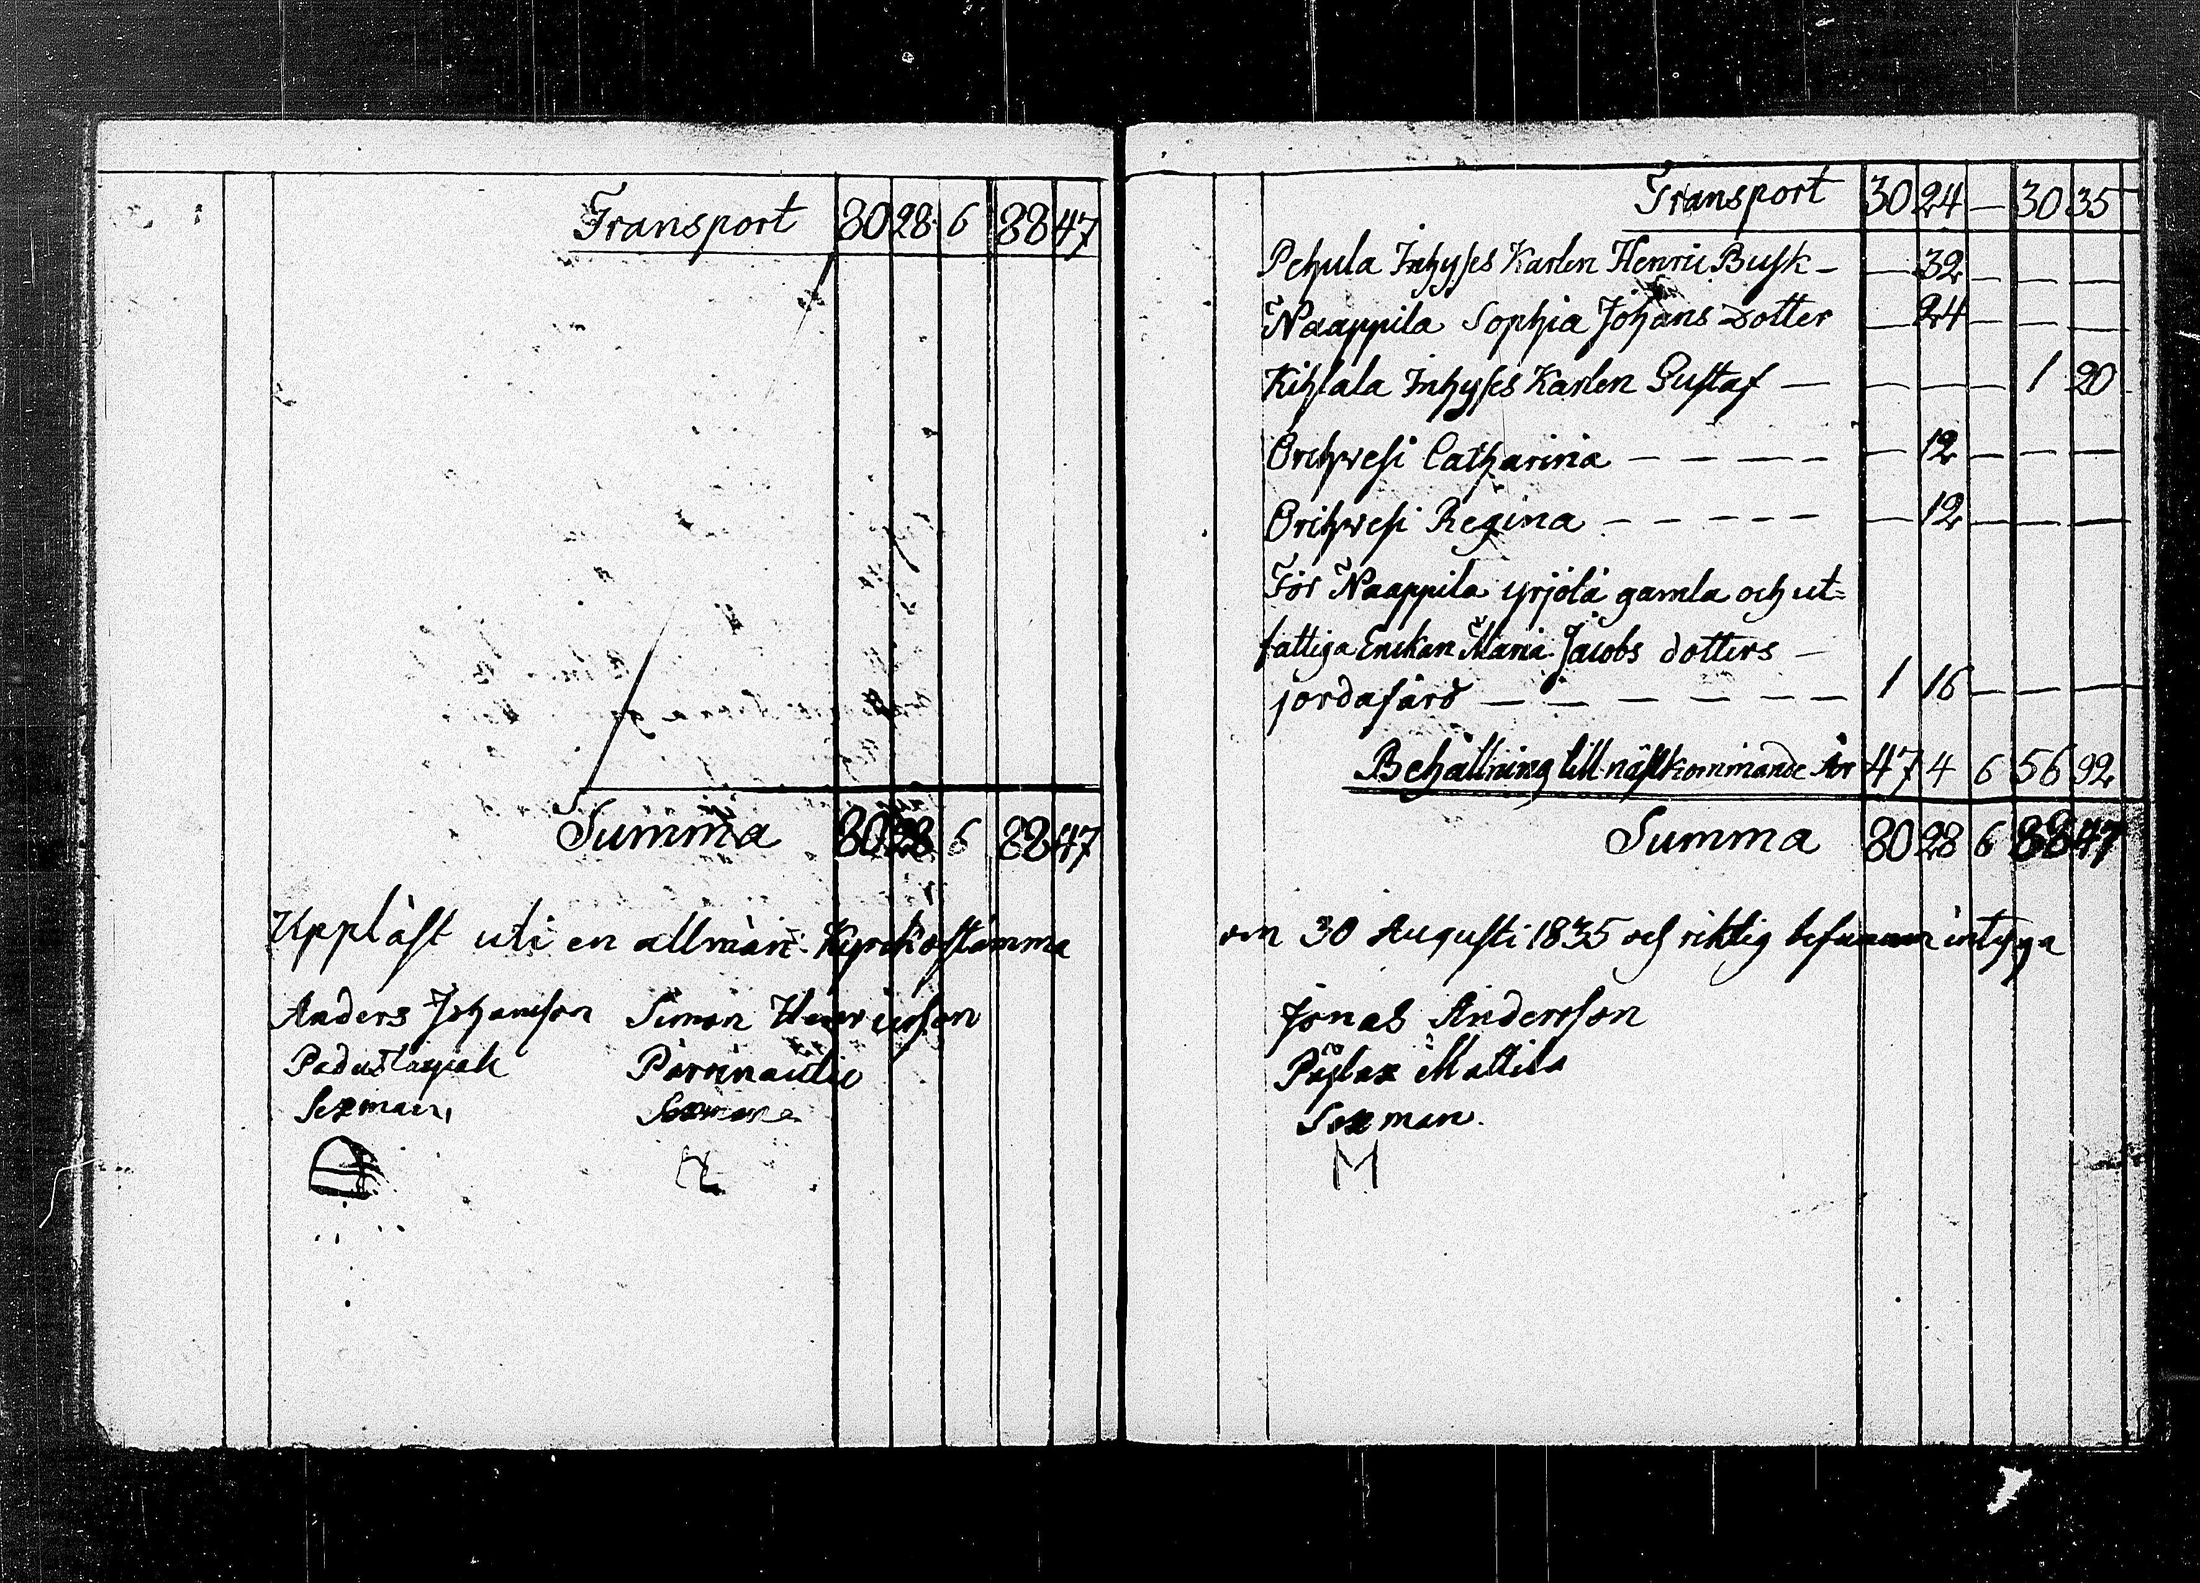 Transport 80 28 6 88 47
Summa 80 28 6 88 47
Uppläst uti en allmän Kyrckostämma
Anders Johansson Simon Henricsson
Sexman, Sexman
Transport 30 24 — 30 35
Pehula Inhyses Karlen Henric Busk — — 32 — — —
Naappila Sophia Johans Dotter — 24 — — —
Kihlala Inhyses Karlen Gustaf — — — — 1 20
Orihwesi Catharina — — — — — — 12 — — —
Orihwesi Regina — — — — — — 12 — — —
För Naappila yrjölä gamla och ut=
fattiga Enckan Maria Jacobs dotters —
jordafärd — — — — — — 1 16 — — —
Behållning till nästkommande År 47 4 6 56 92
Summa 80 28 6 88 47
den 30 Augusti 1835 och riktig befunnen intyga
Jonas Andersson
Päjlax Mattila
Sexman.
M